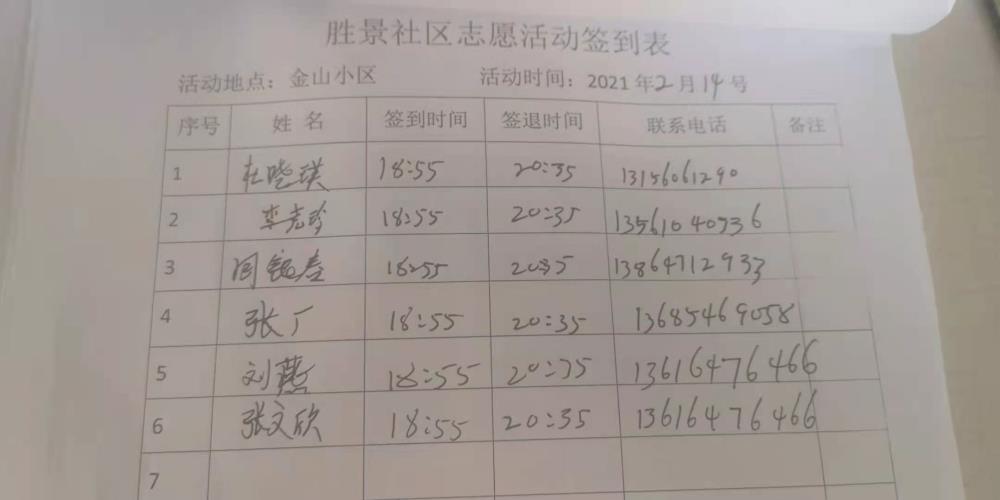 胜景社区志愿活动签到表
活动地点：金山小区 活动时间：2021年2月14号
序号 姓名 签到时间 签退时间 联系电话 备注
1 杜晓瑛 18:55 20:35 13156061290
2 李光玲 18:55 20:35 13561040936
3 18:55 20:35 13864712933
4 张丁 18:55 20:35 13685469058
5 刘燕 18:55 20:35 13616476466
6 张文欣 18:55 20:35 13616476466
7